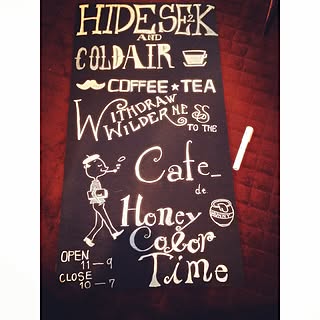 HIDE SEEK
AND
COLD AIR
COFFEE★TEA
WITHDRAW
WILDERNESS
TO THE
Cafe_
de
Honey
Color
Time
OPEN
11-9
CLOSE
10-7